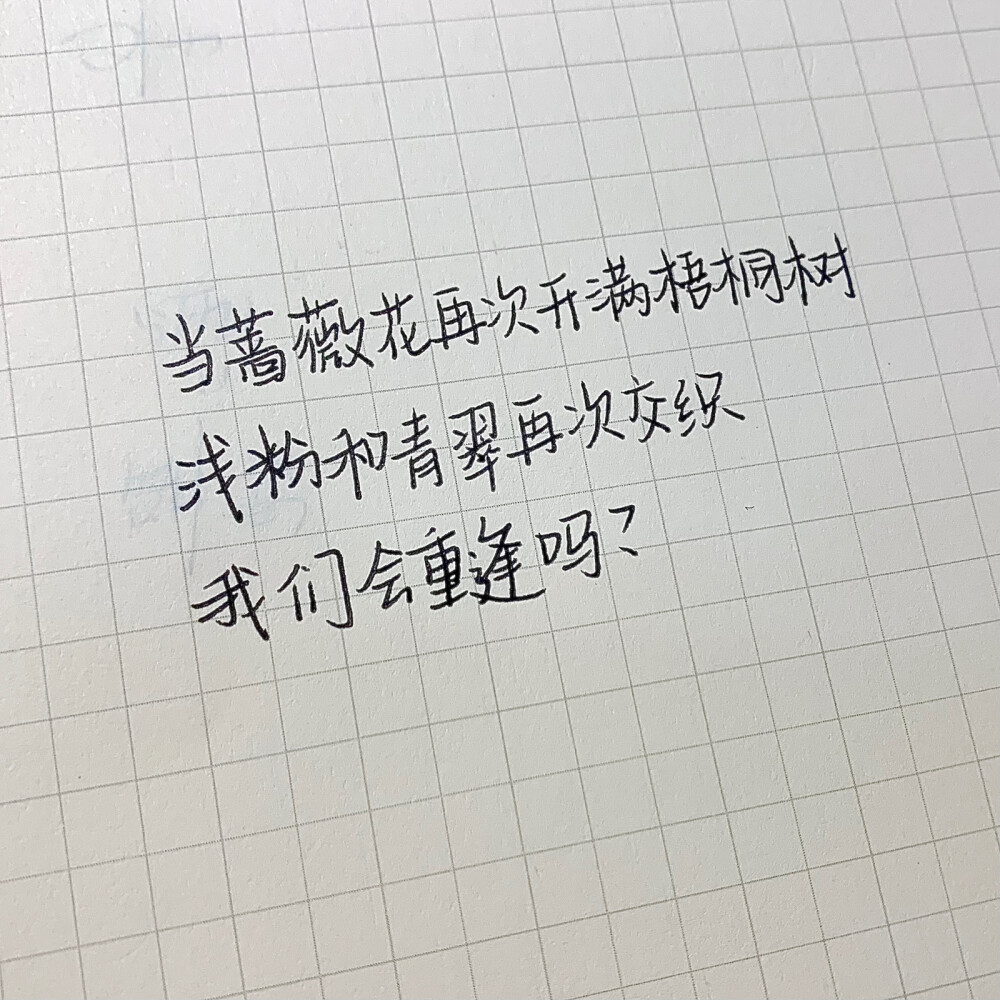 当蔷薇花再次开满梧桐树
浅粉和青翠再次交织
我们会重逢吗？